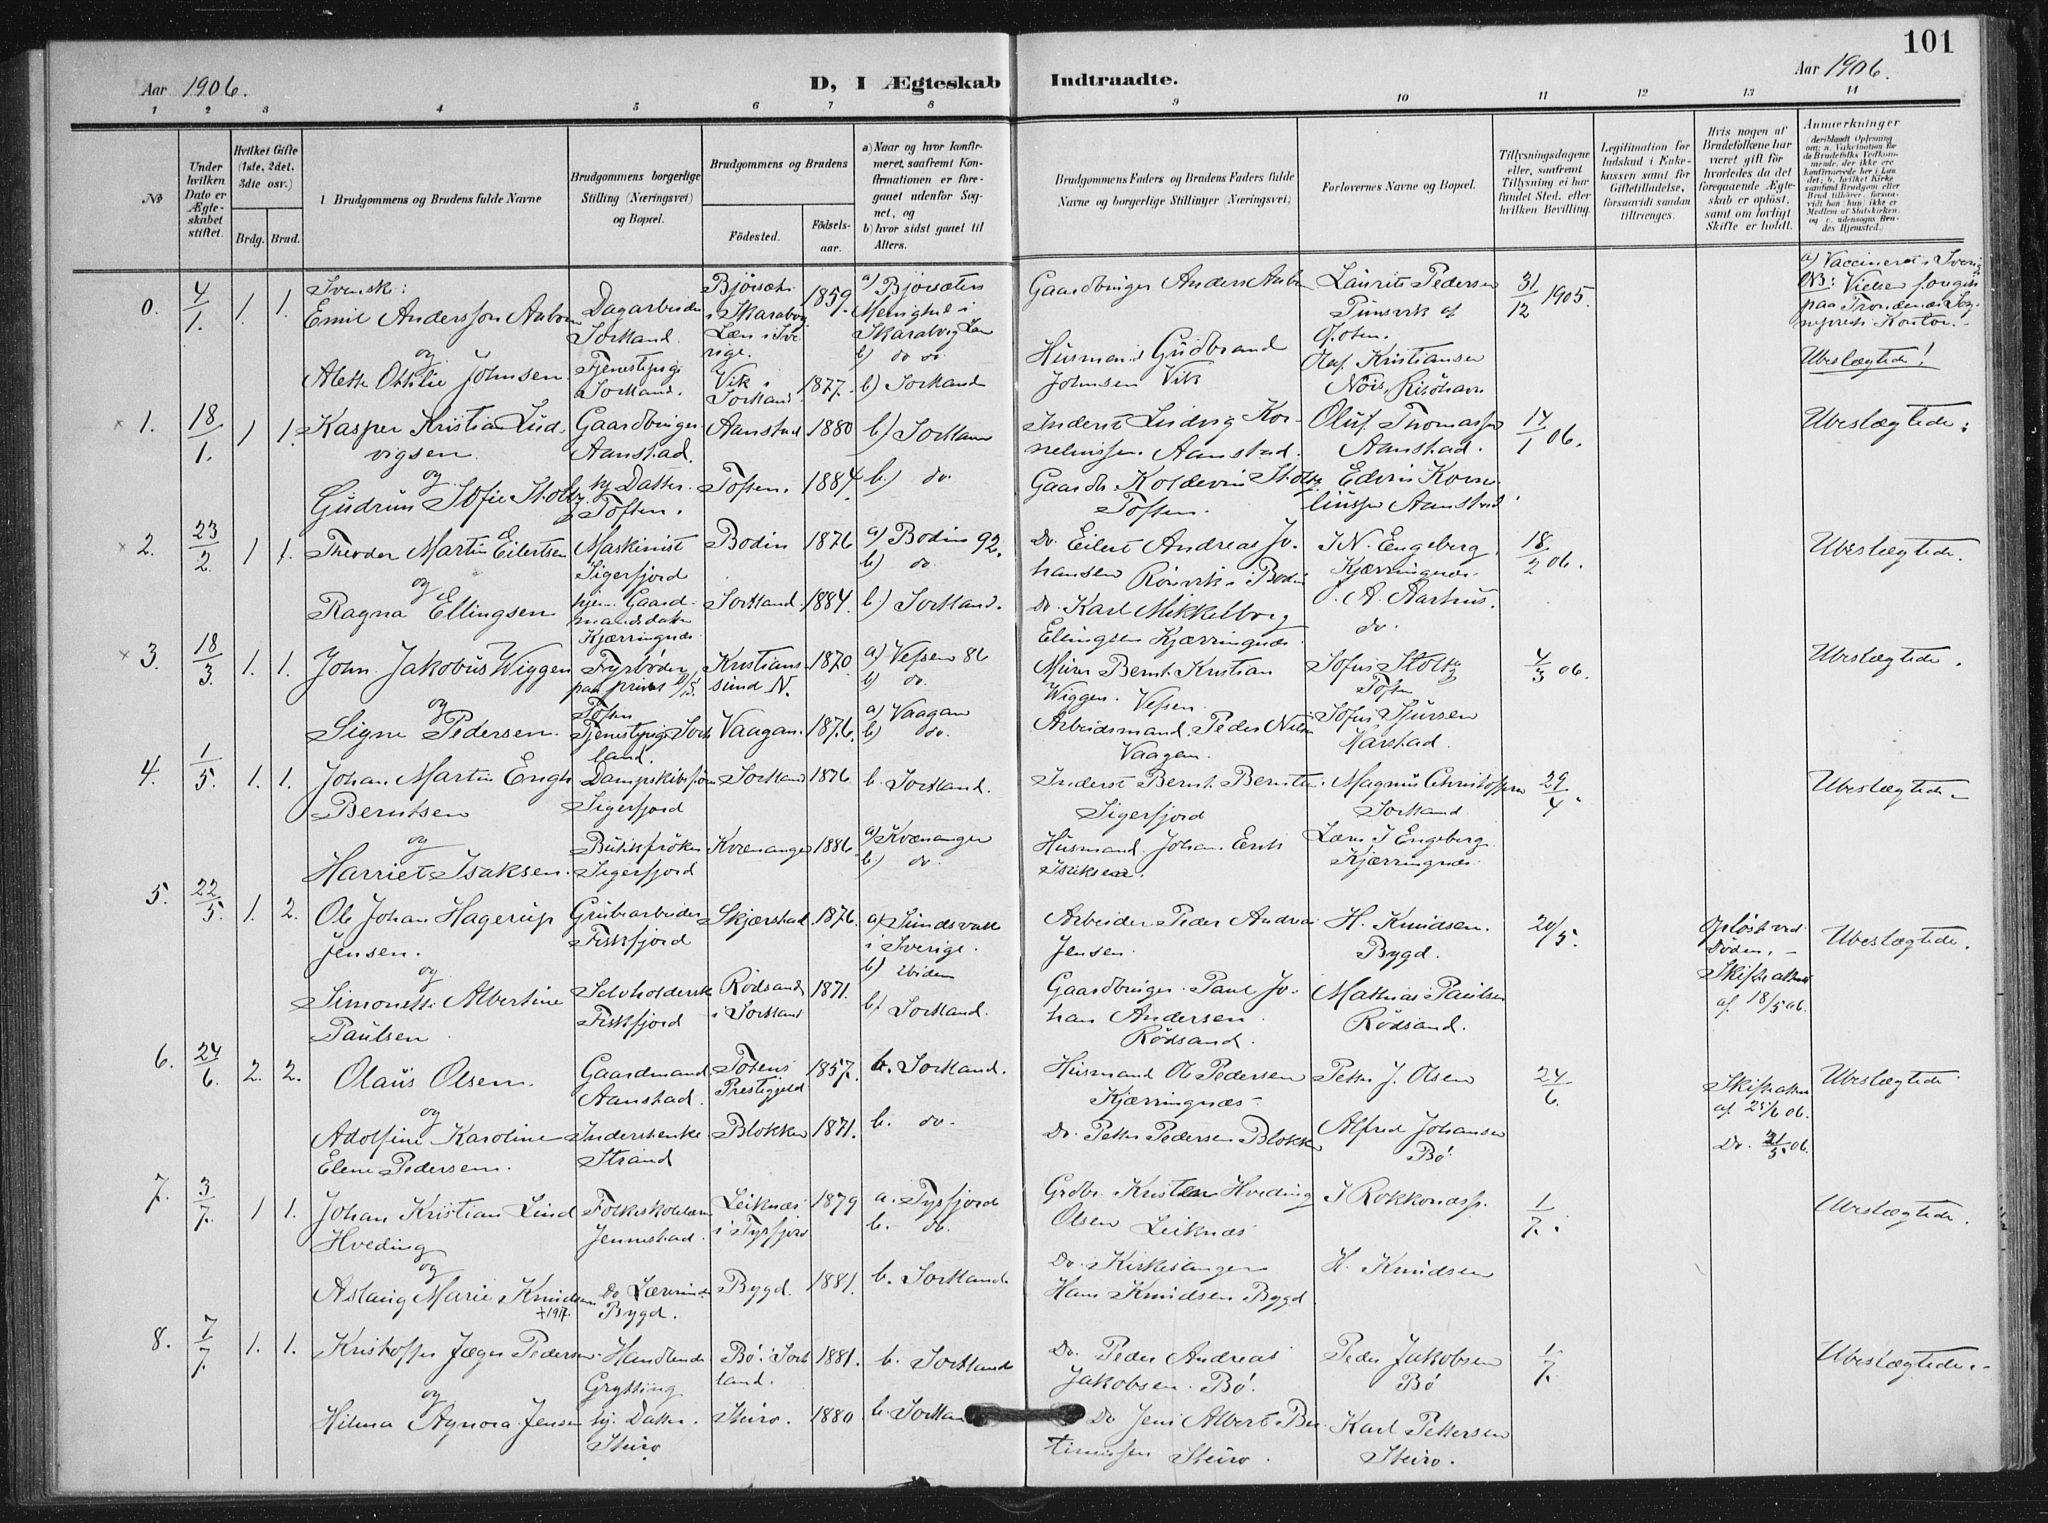 101
Aar 1906.
D, I Ægteskab Indtraadte.
Aar 1906.
1 2 3 4 5 6 7 8 9 10 11 12 13 14
№
Under hvilken Dato er Ægteskabet stiftet.
Hvilket Gifte (1ste, 2det, 3die osv.)
Brdg. Brud.
Brudgommens og Brudens fulde Navne
Brudgommens borgerlige Stilling (Næringsvei) og Bopæl.
Brudgommens og Brudens
Fødested. Fødselsaar.
a) Naar og hvor konfirmeret, saafremt Konfirmationen er foregaaet udenfor Sognet, og
b) hvor sidst gaaet til Alters.
Brudgommens Faders og Brudens Faders fulde Navne og borgerlige Stillinger (Næringsvei)
Forlovernes Navne og Bopæl.
Tillysningsdagene eller, saafremt Tillysning ei har fundet Sted, efter hvilken Bevilling.
Legitimation for Indskud i Enkekassen samt for Giftetilladelse, forsaavidt saadan tiltrænges.
Hvis nogen af Brudefolkene har været gift før hvorledes da det foregaaende Ægteskab er opløst, samt om lovligt Skifte er holdt.
Anmærkninger
0. 4/1. 1. 1. Svensk:
Emil Andersson
og
Alette Ottilie Johnsen
Dagarbeider
Sortland.
Tjenestepige
Sortland.
i Skaraborg
Læn i Sverige. 1859.
Vik i
Sortland. 1877.
a) Bjorsäters
Menighed i
b) do
b) Sortland
Gaardbruger Anders
Husmand Gudbrand
Johnsen Vik
Laurits Pedersen
Olaf Kristiansen
31/12 1905.
a) Vaccineret i Sverige
NB: Vielsen foregik
paa Trondenes Sognepræsts Kontor.
Ubeslægtede!
1. 18/1. 1 1. Kasper Kristian Ludvigsen
og
Gudrun Sofie Stoltz
Gaardbruger
Aanstad.
hj. Datter.
Toften.
Aanstad 1880
Toften. 1884.
b.) Sortland
b.) do.
Inderst Ludvig Kornelinssen. Aanstad.
Gaardbr. Koldevin Stoltz
Toften.
Oluf Thomassen
Aanstad.
Edvin Korneliussen Aanstad
14/1 06.
Ubeslægtede.
2. 23/2. 1 1. Theodor Martin Eilertsen
og
Ragna Ellingsen
Maskinist
Sigerfjord
hjem. Gaardmandsdatter
Kjærringnæs.
Bodin 1876
Sortland. 1884.
a) Bodin 92.
b) do.
b) Sortland.
Do. Eilert Andreas Johansen Rönvik i Bodin
Do. Karl Mikkelborg
Ellingsen Kjærringnæs.
I N. Engeberg
Kjærringnæs.
A. Aarhus.
do.
18/2 06.
Ubeslægtede.
3. 18/3. 1. 1. John Jakobus Wiggen
og
Signe Pedersen.
Fyrbøder
Toften
Tjenestepige Sortland.
Kristianssund N. 1870
Vaagan. 1876.
a) Vefsen 86
b) do.
a) Vaagan
b) do.
Murer Bernt Kristian
Wiggen. Vefsen.
Arbeidsmand. Peder Nilsen
Vaagan.
Sofus Stoltz
Toften
Sofus Sjursen
4/3 06.
Ubeslægtede.
4. 1/5. 1. 1. Johan Martin Engh
Berntsen
og
Harriet Isaksen.
Sigerfjord
Butikfröken
Sigerfjord
Sortland 1876
Kvænangen 1886
b. Sortland.
a) Kvænangen
b) do.
Inderst Bernt Berntsen
Sigerfjord
Husmand Johan Erik
Isaksen.
Magnus Christoffersen
Sortland
Lærer I Engeberg
Kjærringnæs.
29/4.
Ubeslægtede.
5. 22/5. 1. 2. Ole Johan Hagerup
Jensen.
og
Simonette Albertine
Paulsen.
Grubearbeider
Fiskfjord
Selvholderske
Fiskfjord
Skjærstad 1876.
Rödsand
i Sortland 1871.
a) Sundsvall
i Sverige.
b) ibidem
b. Sortland.
Arbeider Peder Andreas
Jensen.
Gaardbruger Paul Johan Andersen.
Rödsand.
H. Knudsen.
Bygd.
Mathias Paulsen
Rödsand.
20/5.
Opløst ved
Døden.
Skifteattest
af 18/5 06.
Ubeslægtede.
6. 24/6. 2. 2. Olaus Olsen.
og
Adolfine Karoline
Elene Pedersen.
Gaardmand
Aanstad.
Inderstenke
Strand
Totens
Prestegjeld 1857.
Blokken 1871.
b. Sortland.
b. do.
Husmand Ole Pedersen
Kjærringnæs.
Do. Petter Pedersen Blokken
Petter J. Olsen
Alfred Johansen
Bø
24/6.
Skifteattest
Do. 21/5. 06.
Ubeslægtede
7. 3/7. 1 1. Johan Kristian Lind
Hveding
og
Aslaug Marie Knudsen
+1917.
Folkeskolelærer
Jennestad.
Do. Lærerinde
Bygd.
Leiknæs
i Tysfjord 1879
Bygd. 1881.
a. Tysfjord
b. do.
b. Sortland
Grdbr. Kristen Hveding
Olsen Leiknæs
Do. Kirkesanger
Hans Knudsen Bygd
H. Knudsen
1/7.
Ubeslægtede.
8. 7/7. 1. 1. Kristoffer Jæger Pedersen
og
Hilma Agnora Jensen
Handlende
Grytting
hj. Datter.
Steiro
Bø. Sortland. 1881.
Steiro. 1880
b. Sortland
b. Sortland
Do. Peder Andreas
Jakobsen. Bø.
Do Jens Albert Bertinussen Steiro.
Peder Jakobsen
Bø
Karl Pettersen
Steiro.
1/7.
Ubeslægtede.